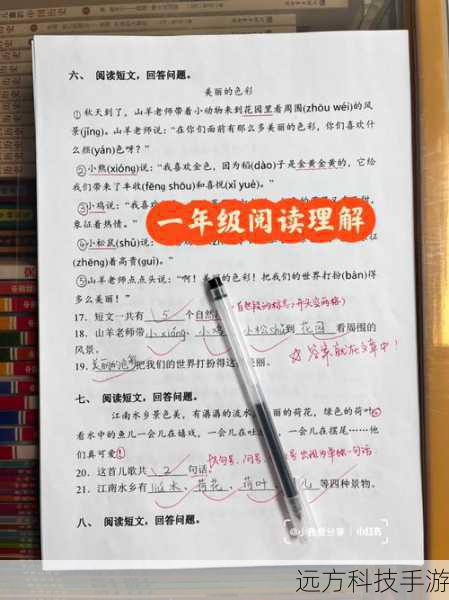 六、 阅读短文，回答问题。
美丽的色彩
①秋天到了，山羊老师带着小动物来到花园里看周围(zhōu wéi)的风
景(jǐng)。山羊老师说：“在你们面前有那么多美丽的色彩，你们喜欢什
么颜(yán)色呀？”
②小熊(xióng)说：“我喜欢金色，因为稻(dào)子是金黄金黄的，它给
我们带来了丰收(fēng shōu)和喜悦(xǐ yuè)。”
③小鸡说：“我喜欢
象征着热情。”
④小松鼠(shǔ)说：
(zhēng)着高贵(guì)。”
⑤山羊老师点点头说：“啊！美丽的色彩！把我们的世界打扮(bàn)得
多么美丽！”
一年级阅读理解
17. 短文一共有 5 个自然 自然段的标志：开头空两格
18. 山羊老师带 小xióng、小鸡 小松shǔ到 花园 看周围的
风景。
☆答案就在文章中！
19. 美丽的色彩把我们的世界打扮得 美丽。
七、 阅读短文，回答问题。
江南水乡景色美，有潺潺的流水 丽的荷花，绿色的荷叶
看水中的鱼儿一会儿在嬉戏，一会儿在吐 一会儿在摆尾……他
们真可爱！
20. 这首儿歌共 2 句话。
21. 江南水乡有 流水、荷花、荷叶、 儿 等四种景物。
八、 阅读短文，回答问题。
小红书
远方科技手游